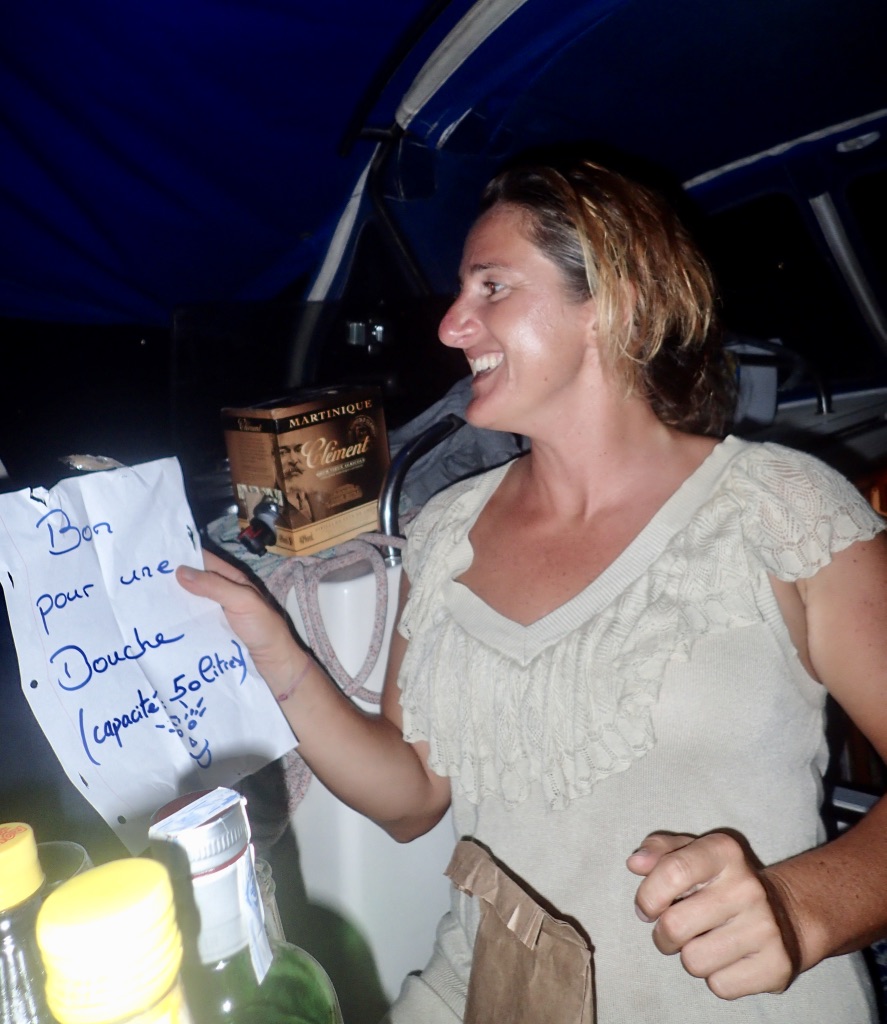 Bon
pour une
Douche
(capacité: 50 litres)
MARTINIQUE
Clément